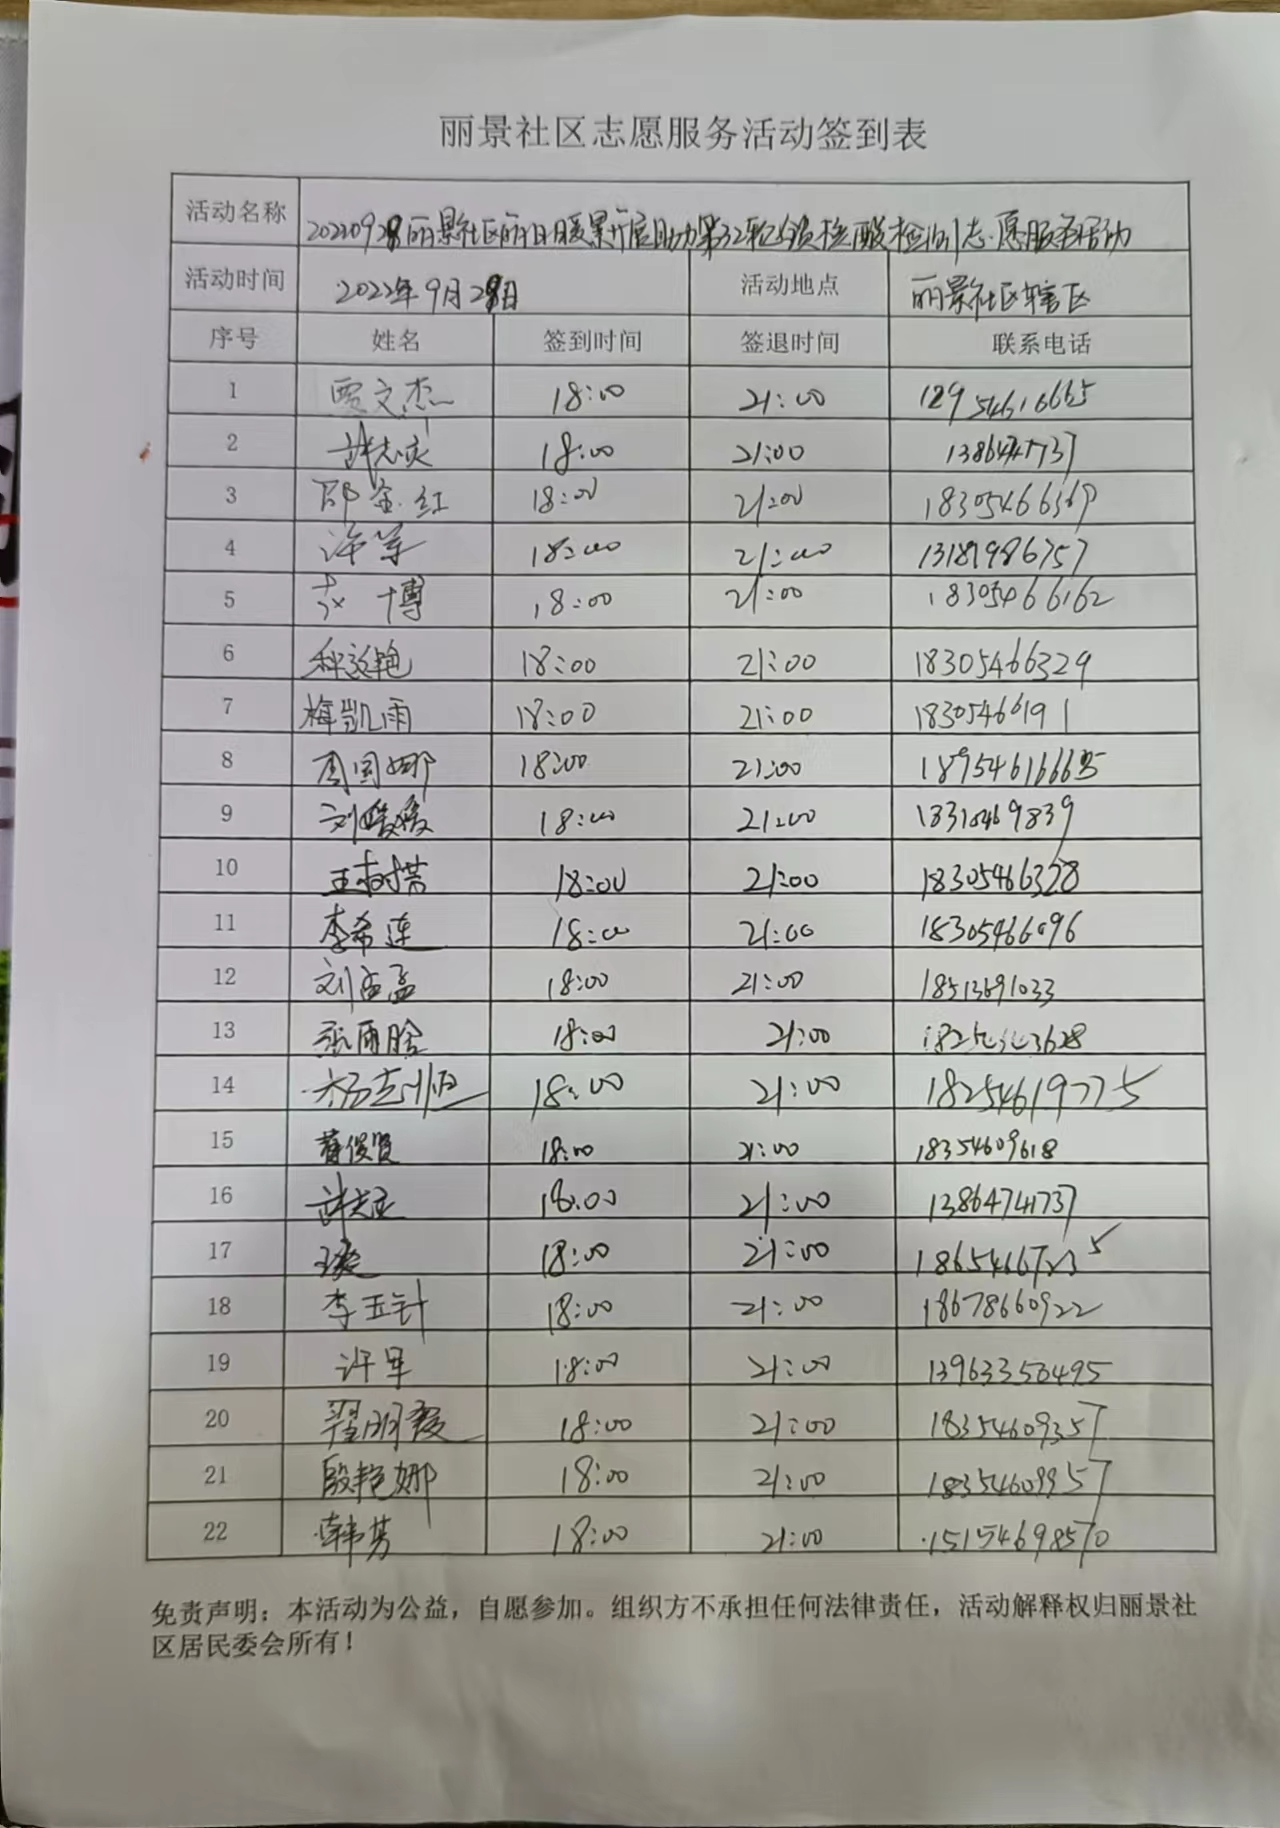 丽景社区志愿服务活动签到表
活动名称 20220928丽景社区 开展助力第32轮 核酸检测志愿服务活动
活动时间 2022年9月28日 活动地点 丽景社区辖区
序号 姓名 签到时间 签退时间 联系电话
1 贾文杰 18:00 21:00
2 18:00 21:00
3 邵金红 18:00 21:00 18305466369
4 许军 18:00 21:00 13181986757
5 博 18:00 21:00 18305466162
6 18:00 21:00 18305466329
7 梅凯雨 18:00 21:00 18305466191
8 周国娜 18:00 21:00 18954616665
9 刘媛媛 18:00 21:00
10 王树芹 18:00 21:00 18305466328
11 李希莲 18:00 21:00 18305466096
12 刘孟孟 18:00 21:00
13 张雨晗 18:00 21:00
14 杨志恒 18:00 21:00 18254619775
15 俊贤 18:00 21:00 18354609618
16 18:00 21:00 13864741737
17 18:00 21:00
18 李玉针 18:00 21:00 18678660922
19 许军 18:00 21:00 13963350495
20 翟明霞 18:00 21:00 18354609357
21 殷艳娜 18:00 21:00 18354609957
22 韩芳 18:00 21:00 15154698570
免责声明：本活动为公益，自愿参加。组织方不承担任何法律责任，活动解释权归丽景社
区居民委会所有！